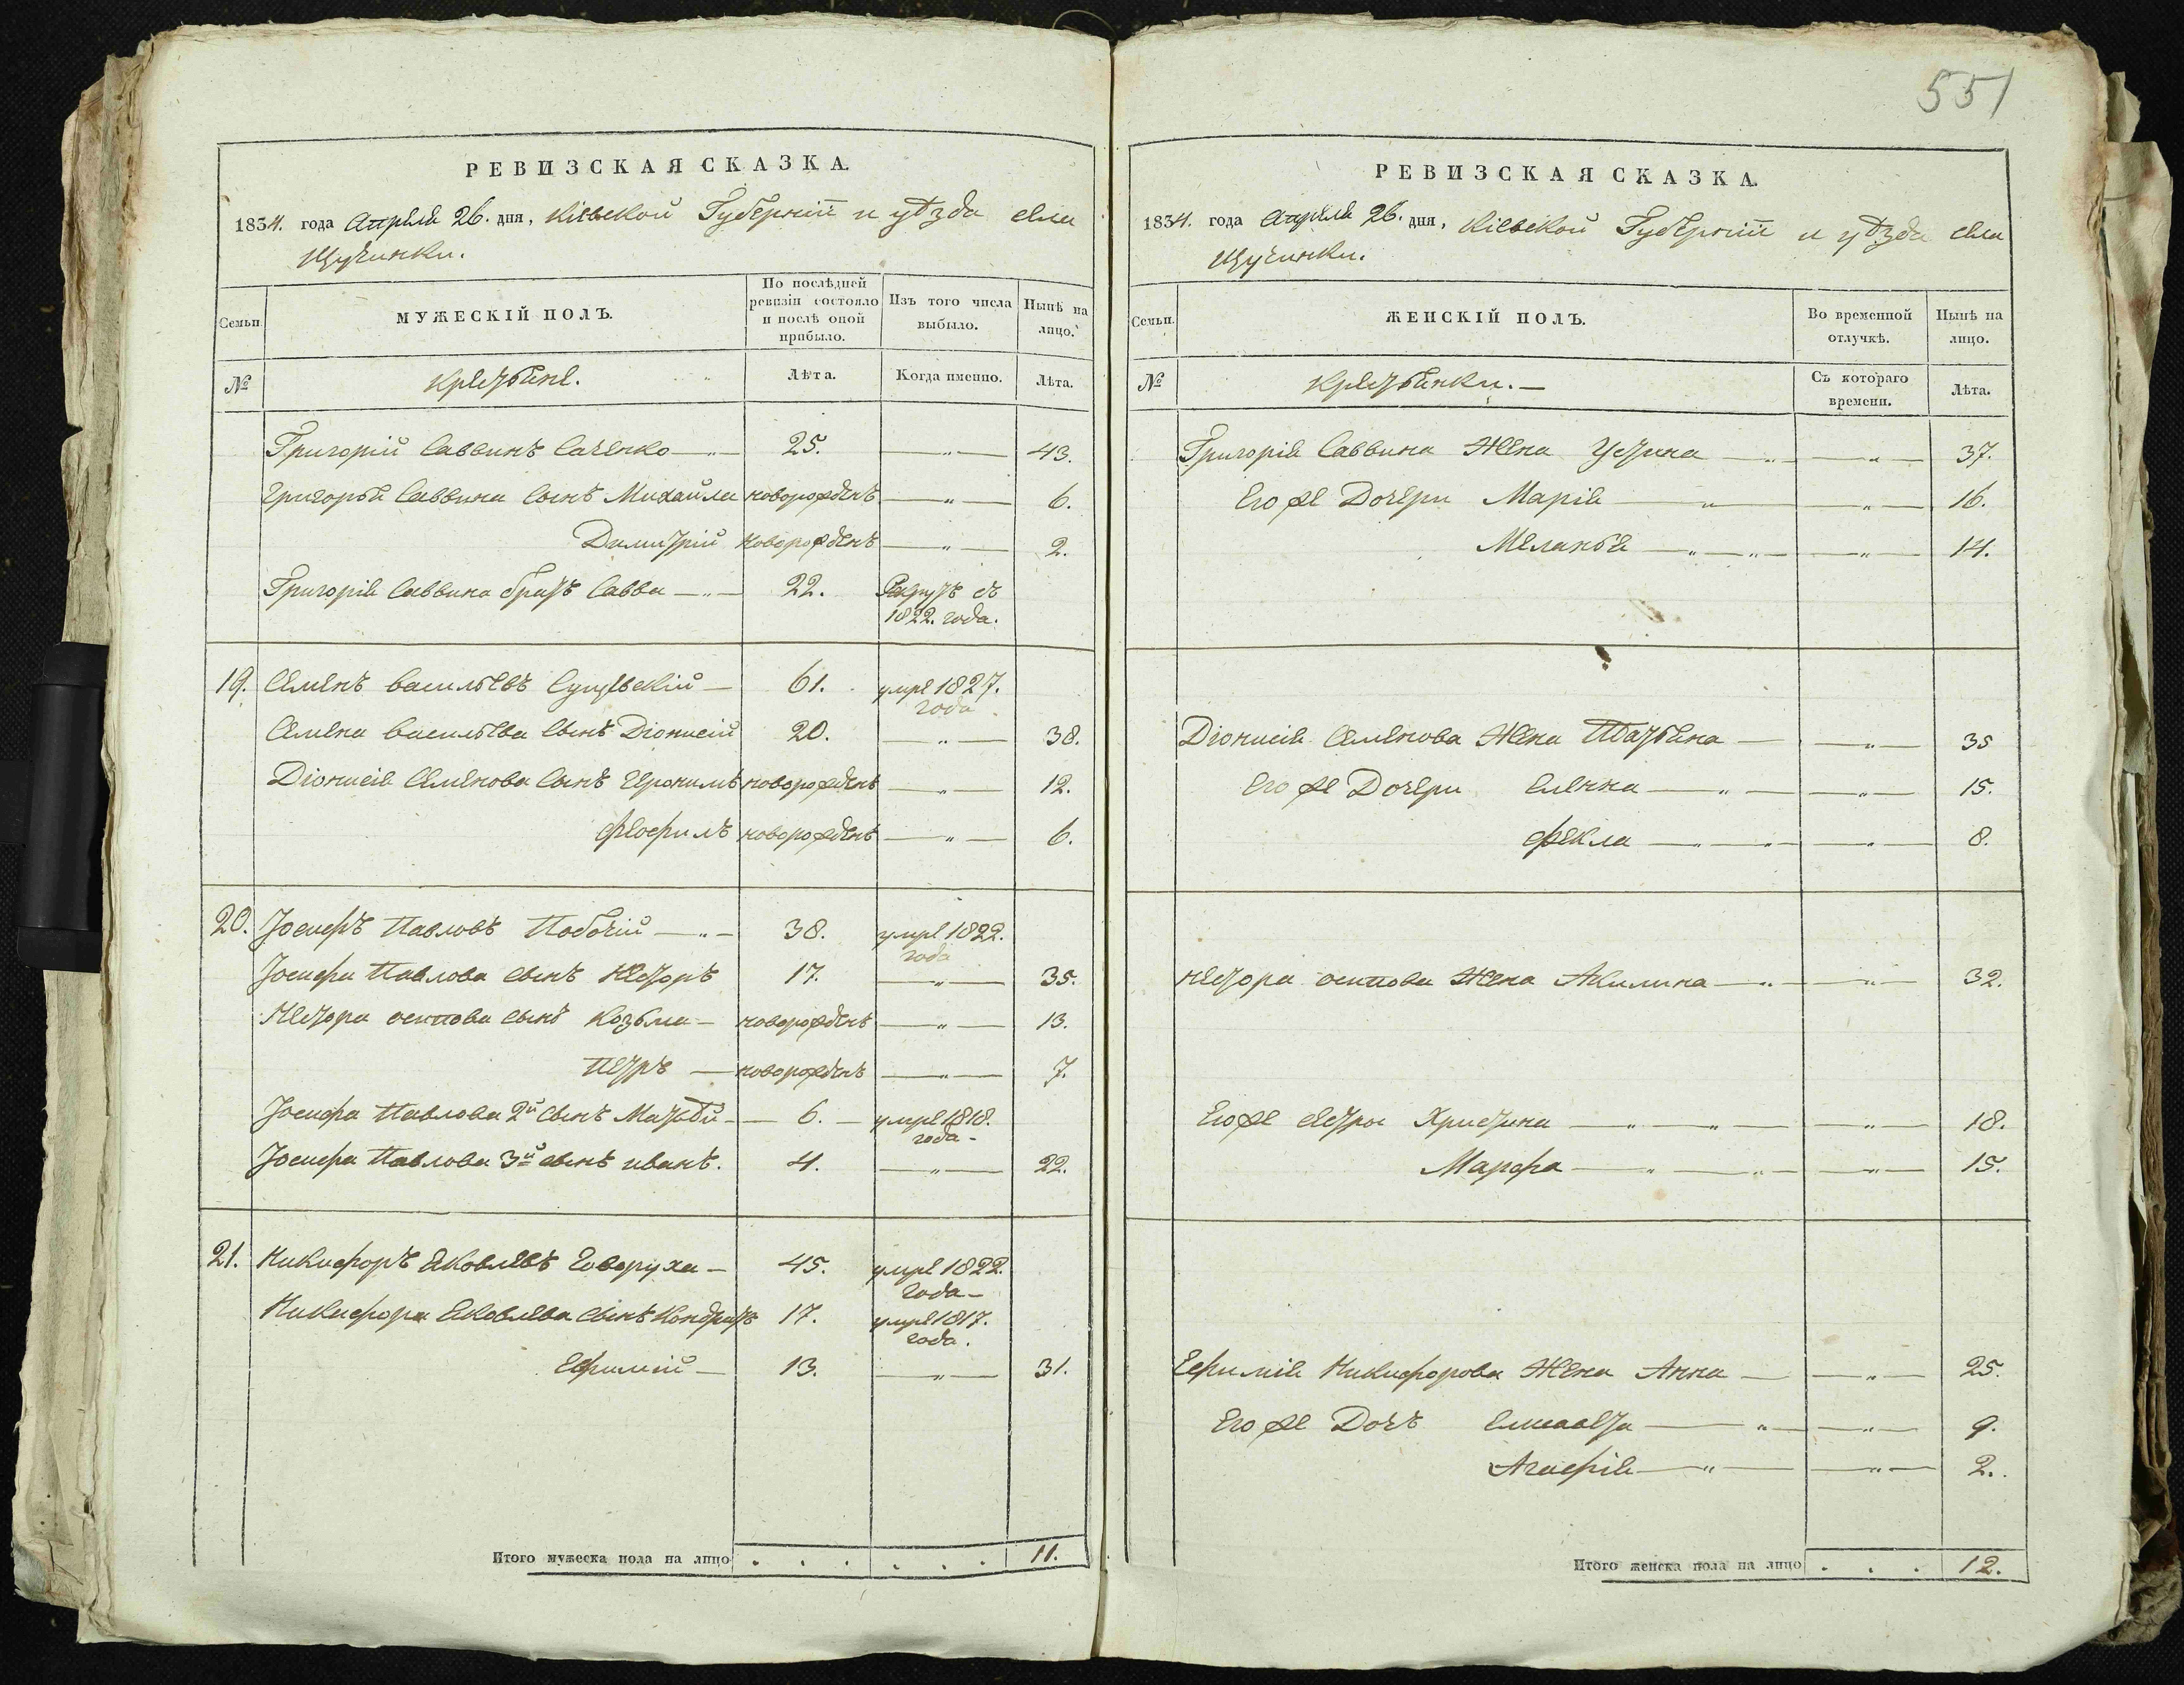 551
РЕВИЗСКАЯ СКАЗКА.
1834. года Апреля 26. дня, Кіевской Губерніи и уѣзда села
Щучинки.
Семьи.
МУЖЕСКІЙ ПОЛЪ.
По послѣдней
ревизіи состояло
и послѣ оной
прибыло.
Изъ того числа
выбыло.
Нынѣ на
лицо.
№
Крестьяне.
Лѣта.
Когда именно.
Лѣта.
Григорій Саввинъ Саченко 25. „ 43.
Григорья Саввина Сынъ Михайла новорожденъ „ 6.
Димитрій новорожденъ „ 2.
Григорія Саввина братъ Савва 22. Рекрутъ съ
1822. года.
19. Семенъ Васильевъ 61. умре 1827.
года
Семена Васильева Сынъ Діонисій 20. „ 38.
Діонисія Семенова Сынъ Іеронимъ новорожденъ „ 12.
Феофилъ новорожденъ „ 6.
20. Іосифъ Павловъ Побочій 38. умре 1822.
года
Іосифа Павлова сынъ Несторъ 17. „ 35.
Нестора осипова сынъ Козьма новорожденъ „ 13.
Петръ новорожденъ „ 7.
Іосифа Павлова 2й сынъ Матвѣй 6. умре 1818.
года
Іосифа Павлова 3й сынъ иванъ. 4. „ 22.
21. Никифоръ Яковлевъ Говоруха 45. умре 1822.
года
Никифора Яковлева сынъ Кондратъ 17. умре 1817.
года.
Ефимій 13. „ 31.
Итого мужеска пола на лицо . . . . . . 11.
РЕВИЗСКАЯ СКАЗКА.
1834. года Апреля 26. дня, Кіевской Губерніи и уѣзда села
Щучинки.
Семьи.
ЖЕНСКІЙ ПОЛЪ.
Во временной
отлучкѣ.
Нынѣ на
лицо.
№
Крестьянки.
Съ котораго
времени.
Лѣта.
Григорія Саввина Жена Устина „ 37.
Его же Дочери Марія „ 16.
Меланья „ 14.
Діонисія Семенова Жена Татьяна „ 35
Его же Дочери Еленна „ 15.
Фекла „ 8.
Нестора осипова Жена Акилина „ 32.
Его же сестры Христина „ 18.
Марфа „ 15.
Ефимія Никифорова Жена Анна „ 25.
Его же Дочъ Елисавета „ 9.
Агафія „ 2.
Итого женска пола на лицо . . . 12.